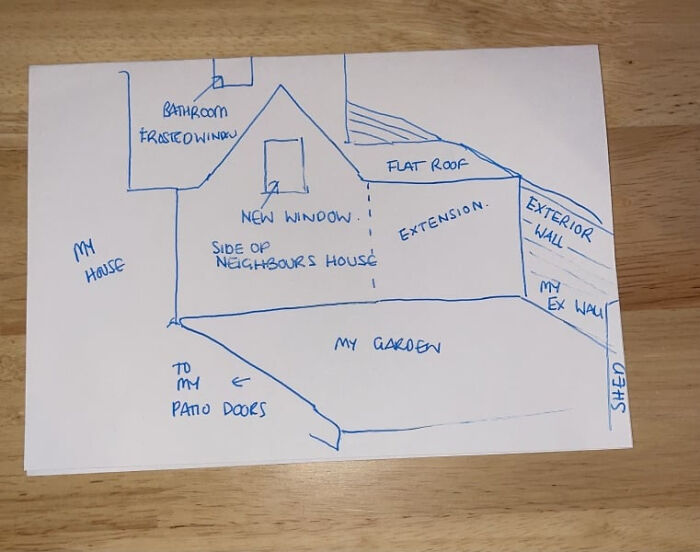 BATHROOM
FROSTED WINDOW
FLAT ROOF
NEW WINDOW.
EXTENSION.
EXTERIOR
WALL
SIDE OF
NEIGHBOURS HOUSE
MY
HOUSE
MY
EX WALL
MY GARDEN
TO
MY ←
PATIO DOORS
SHED